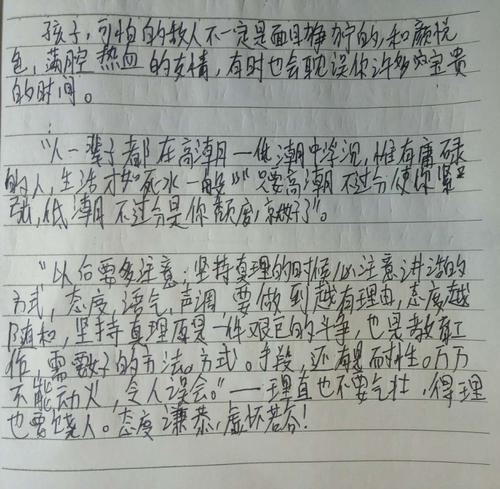 孩子，可怕的敌人不一定是面目狰狞的，和颜悦
色，满腔热血的友情，有时也会耽误你许多宝贵
的时间。
"人一辈子都在高潮一低潮中浮沉，惟有庸碌
的人，生活才如死水一般""只要高潮不过分使你紧
张，低潮不过分是你颓废，就好了"。
"以后要多注意：坚持真理的时候必注意讲话的
方式，态度，语气，声调 要做到越有理由，态度越
随和，坚持真理原是一件艰巨的斗争，也是教育工
作，需要好的方法。方式。手段，还有是耐性。万万
不能动火，令人误会。"——理直也不要气壮，得理
也要饶人。态度谦恭，虚怀若谷！